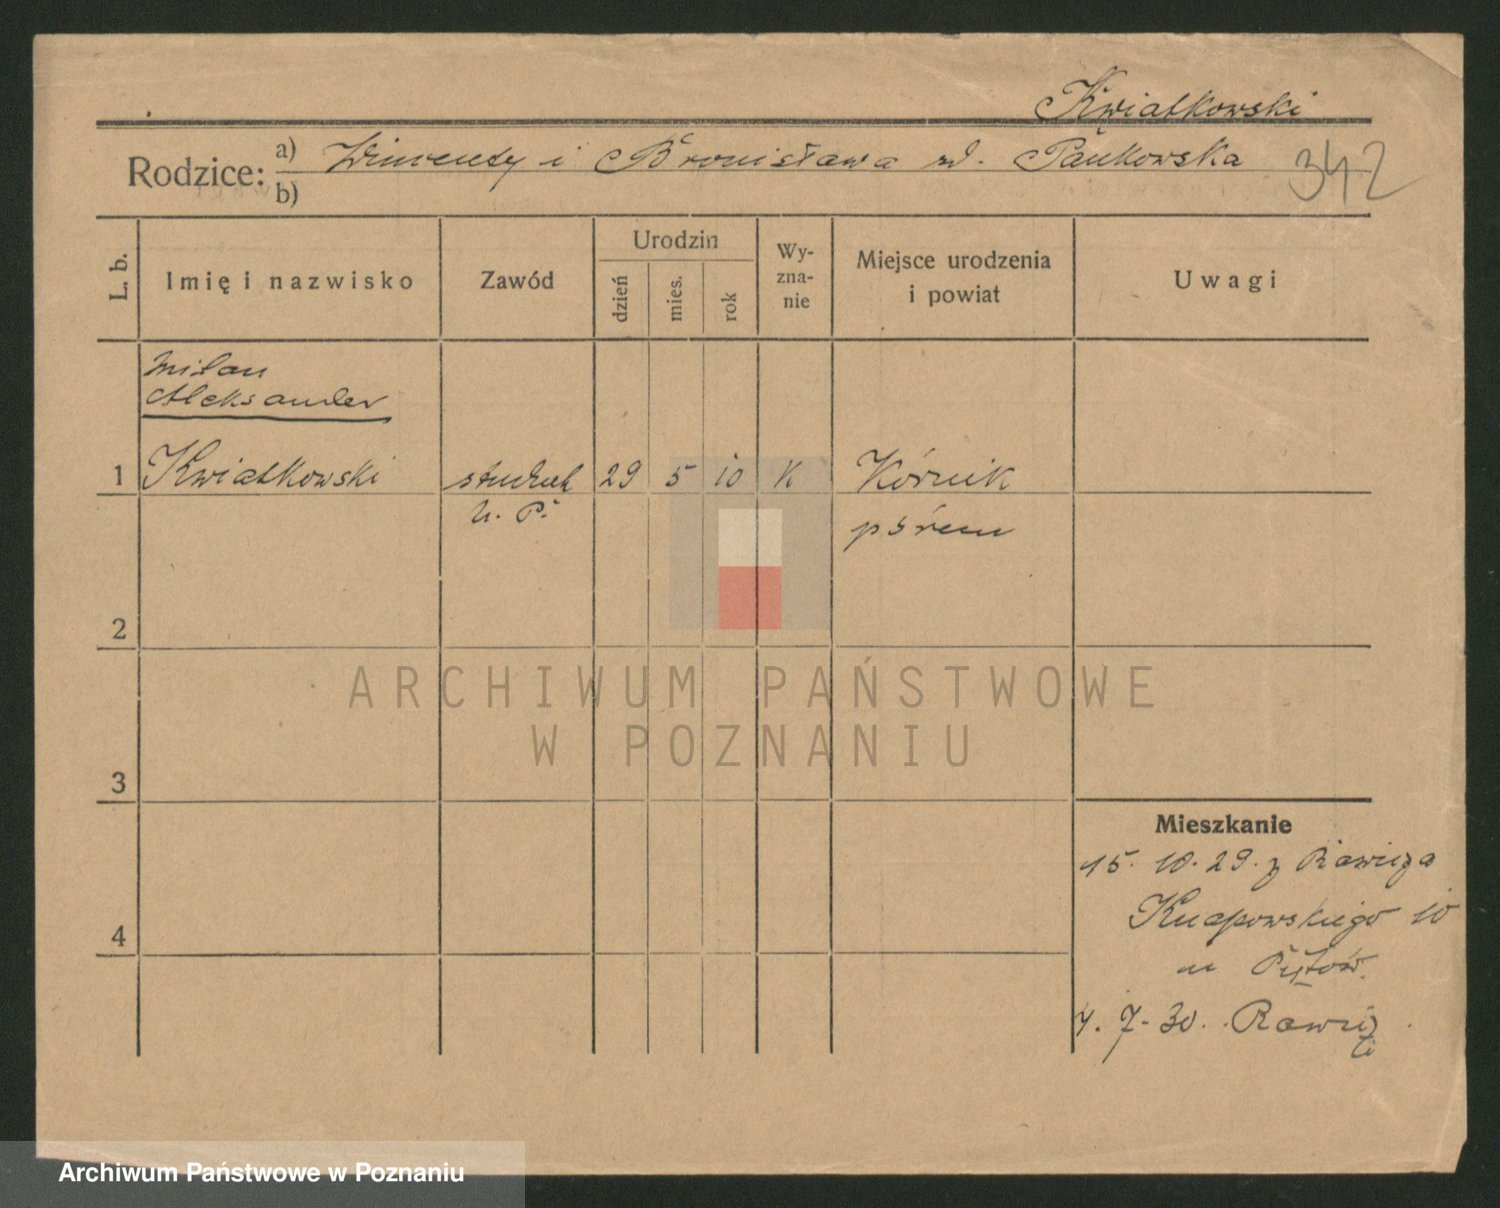 Kwiatkowski
Rodzice: a) Wincenty i Bronisława zd. Pańkowska
b)
342
L. b. Imię i nazwisko Zawód Urodzin Wy-zna-nie Miejsce urodzenia i powiat Uwagi
dzień mies. rok
Milan
Aleksander
1 Kwiatkowski student 29 5 10 K Kórnik
U. P. p Śrem
2
ARCHIWUM PAŃSTWOWE
W POZNANIU
3
Mieszkanie
15. 10. 29. z Rawicza
Knapowskiego 10
4
u
4. 7. 30. Rawicz
Archiwum Państwowe w Poznaniu